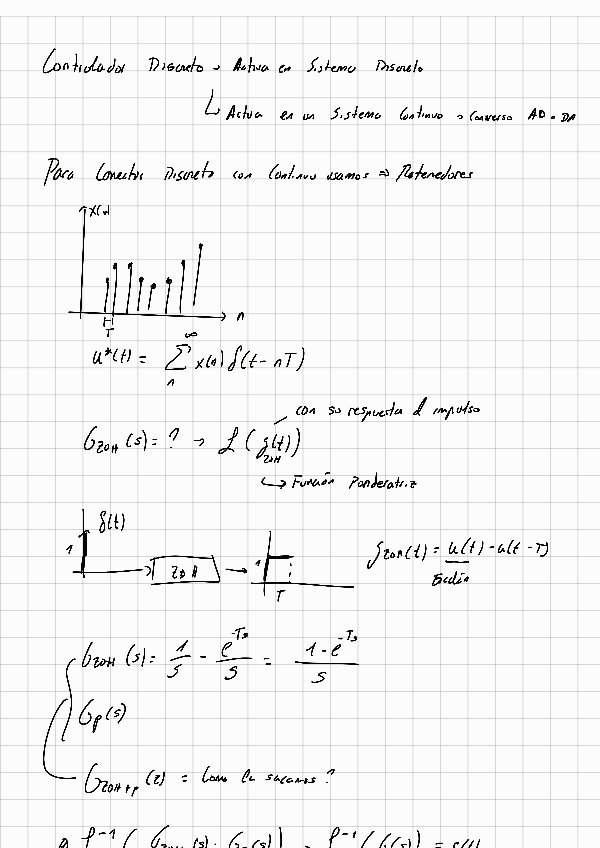 Controlador Discreto → Actua en Sistema Discreto
↳ Actua en un Sistema Continuo → Conversor AD-DA
Para Conectar Discreto con Continuo usamos ⇒ Retenedores
x(n)
n
T
u*(t) = ∑ x(n) δ(t - nT)
∞
n
con su respuesta al impulso
G_ZOH (s) = ? → ℒ (g(t))
ZOH
↳ Función Ponderatriz
δ(t)
1
ZOH
1
T
g_ZOH(t) = u(t) - u(t - T)
Escalón
G_ZOH (s) = 1/s - e^-Ts/s = (1 - e^-Ts)/s
G_p(s)
G_ZOH+p (z) = Como la sacamos?